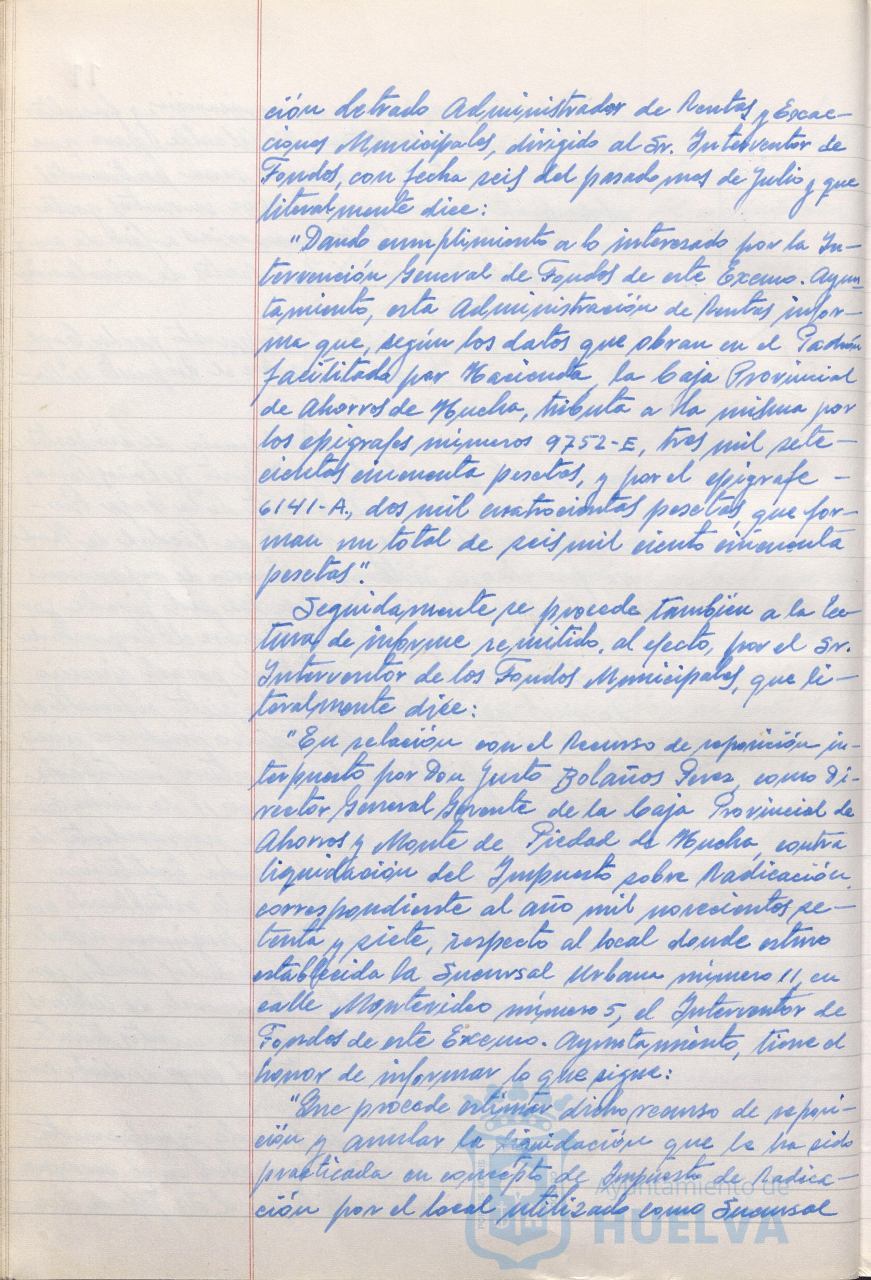 ción letrado Administrador de Rentas y Exac-
ciones Municipales, dirigido al Sr. Interventor de
Fondos, con fecha seis del pasado mes de Julio y que
literalmente dice:
"Dando cumplimiento a lo interesado por la In-
tervención General de Fondos de este Excmo. Ayun
tamiento, esta Administración de Rentas infor-
ma que, según los datos que obran en el Padrón
facilitado por Hacienda, la Caja Provincial
de Ahorros de Huelva, tributa a la misma por
los epígrafes números 9752-E, tres mil sete-
cientas cincuenta pesetas, y por el epígrafe -
6141-A., dos mil cuatrocientas pesetas, que for-
man un total de seis mil ciento cincuenta
pesetas".
Seguidamente se procede también a la lec-
tura de informe remitido, al efecto, por el Sr.
Interventor de los Fondos Municipales, que li-
teralmente dice:
"En relación con el Recurso de reposición in-
terpuesto por Don Justo Bolaños Perez, como Di-
rector General Gerente de la Caja Provincial de
Ahorros y Monte de Piedad de Huelva, contra
liquidación del Impuesto sobre Radicación,
correspondiente al año mil novecientos se-
tenta y siete, respecto al local donde estuvo
establecida la Sucursal Urbana número 11, en
calle Montevideo número 5, el Interventor de
Fondos de este Excmo. Ayuntamiento, tiene el
honor de informar lo que sigue:
"Que procede estimar dicho recurso de reposi-
ción y anular la liquidación que le ha sido
practicada en concepto de Impuesto de Radica-
ción por el local utilizado como Sucursal
Ayuntamiento de
HUELVA